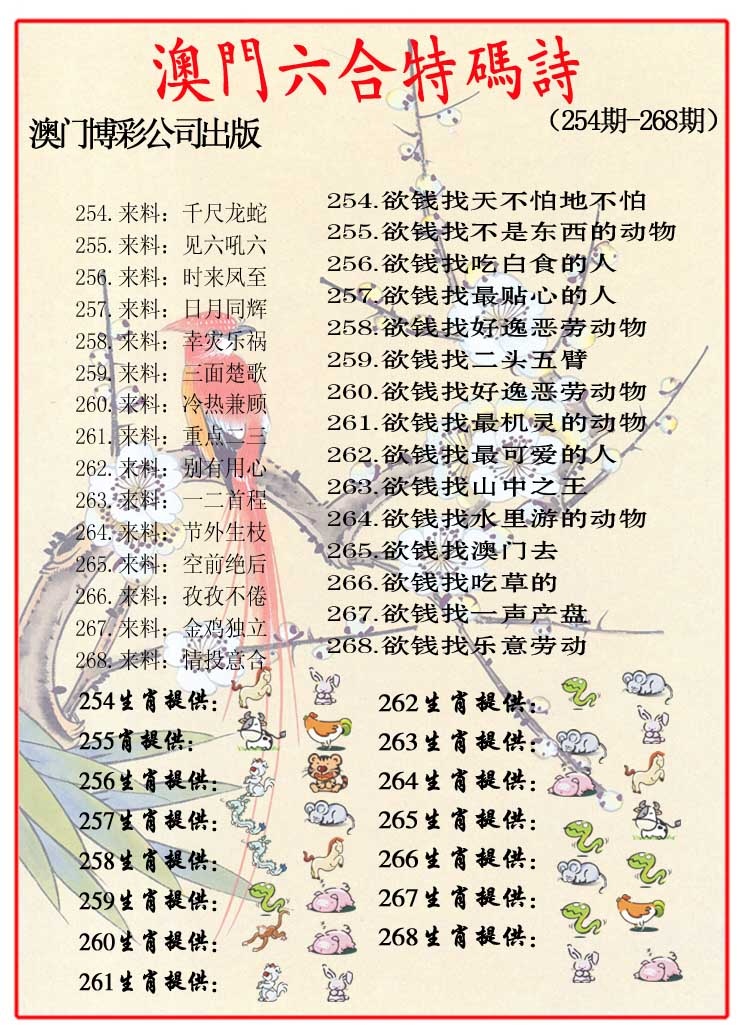 澳門六合特碼詩
澳门博彩公司出版
（254期-268期）
254.来料：千尺龙蛇
255.来料：见六吼六
256.来料：时来凤至
257.来料：日月同辉
258.来料：幸灾乐祸
259.来料：三面楚歌
260.来料：冷热兼顾
261.来料：重点二三
262.来料：别有用心
263.来料：一二首程
264.来料：节外生枝
265.来料：空前绝后
266.来料：孜孜不倦
267.来料：金鸡独立
268.来料：情投意合
254.欲钱找天不怕地不怕
255.欲钱找不是东西的动物
256.欲钱找吃白食的人
257.欲钱找最贴心的人
258.欲钱找好逸恶劳动物
259.欲钱找二头五臂
260.欲钱找好逸恶劳动物
261.欲钱找最机灵的动物
262.欲钱找最可爱的人
263.欲钱找山中之王
264.欲钱找水里游的动物
265.欲钱找澳门去
266.欲钱找吃草的
267.欲钱找一声产盘
268.欲钱找乐意劳动
254生肖提供：
255肖提供：
256生肖提供：
257生肖提供：
258生肖提供：
259生肖提供：
260生肖提供：
261生肖提供：
262生肖提供：
263生肖提供：
264生肖提供：
265生肖提供：
266生肖提供：
267生肖提供：
268生肖提供：